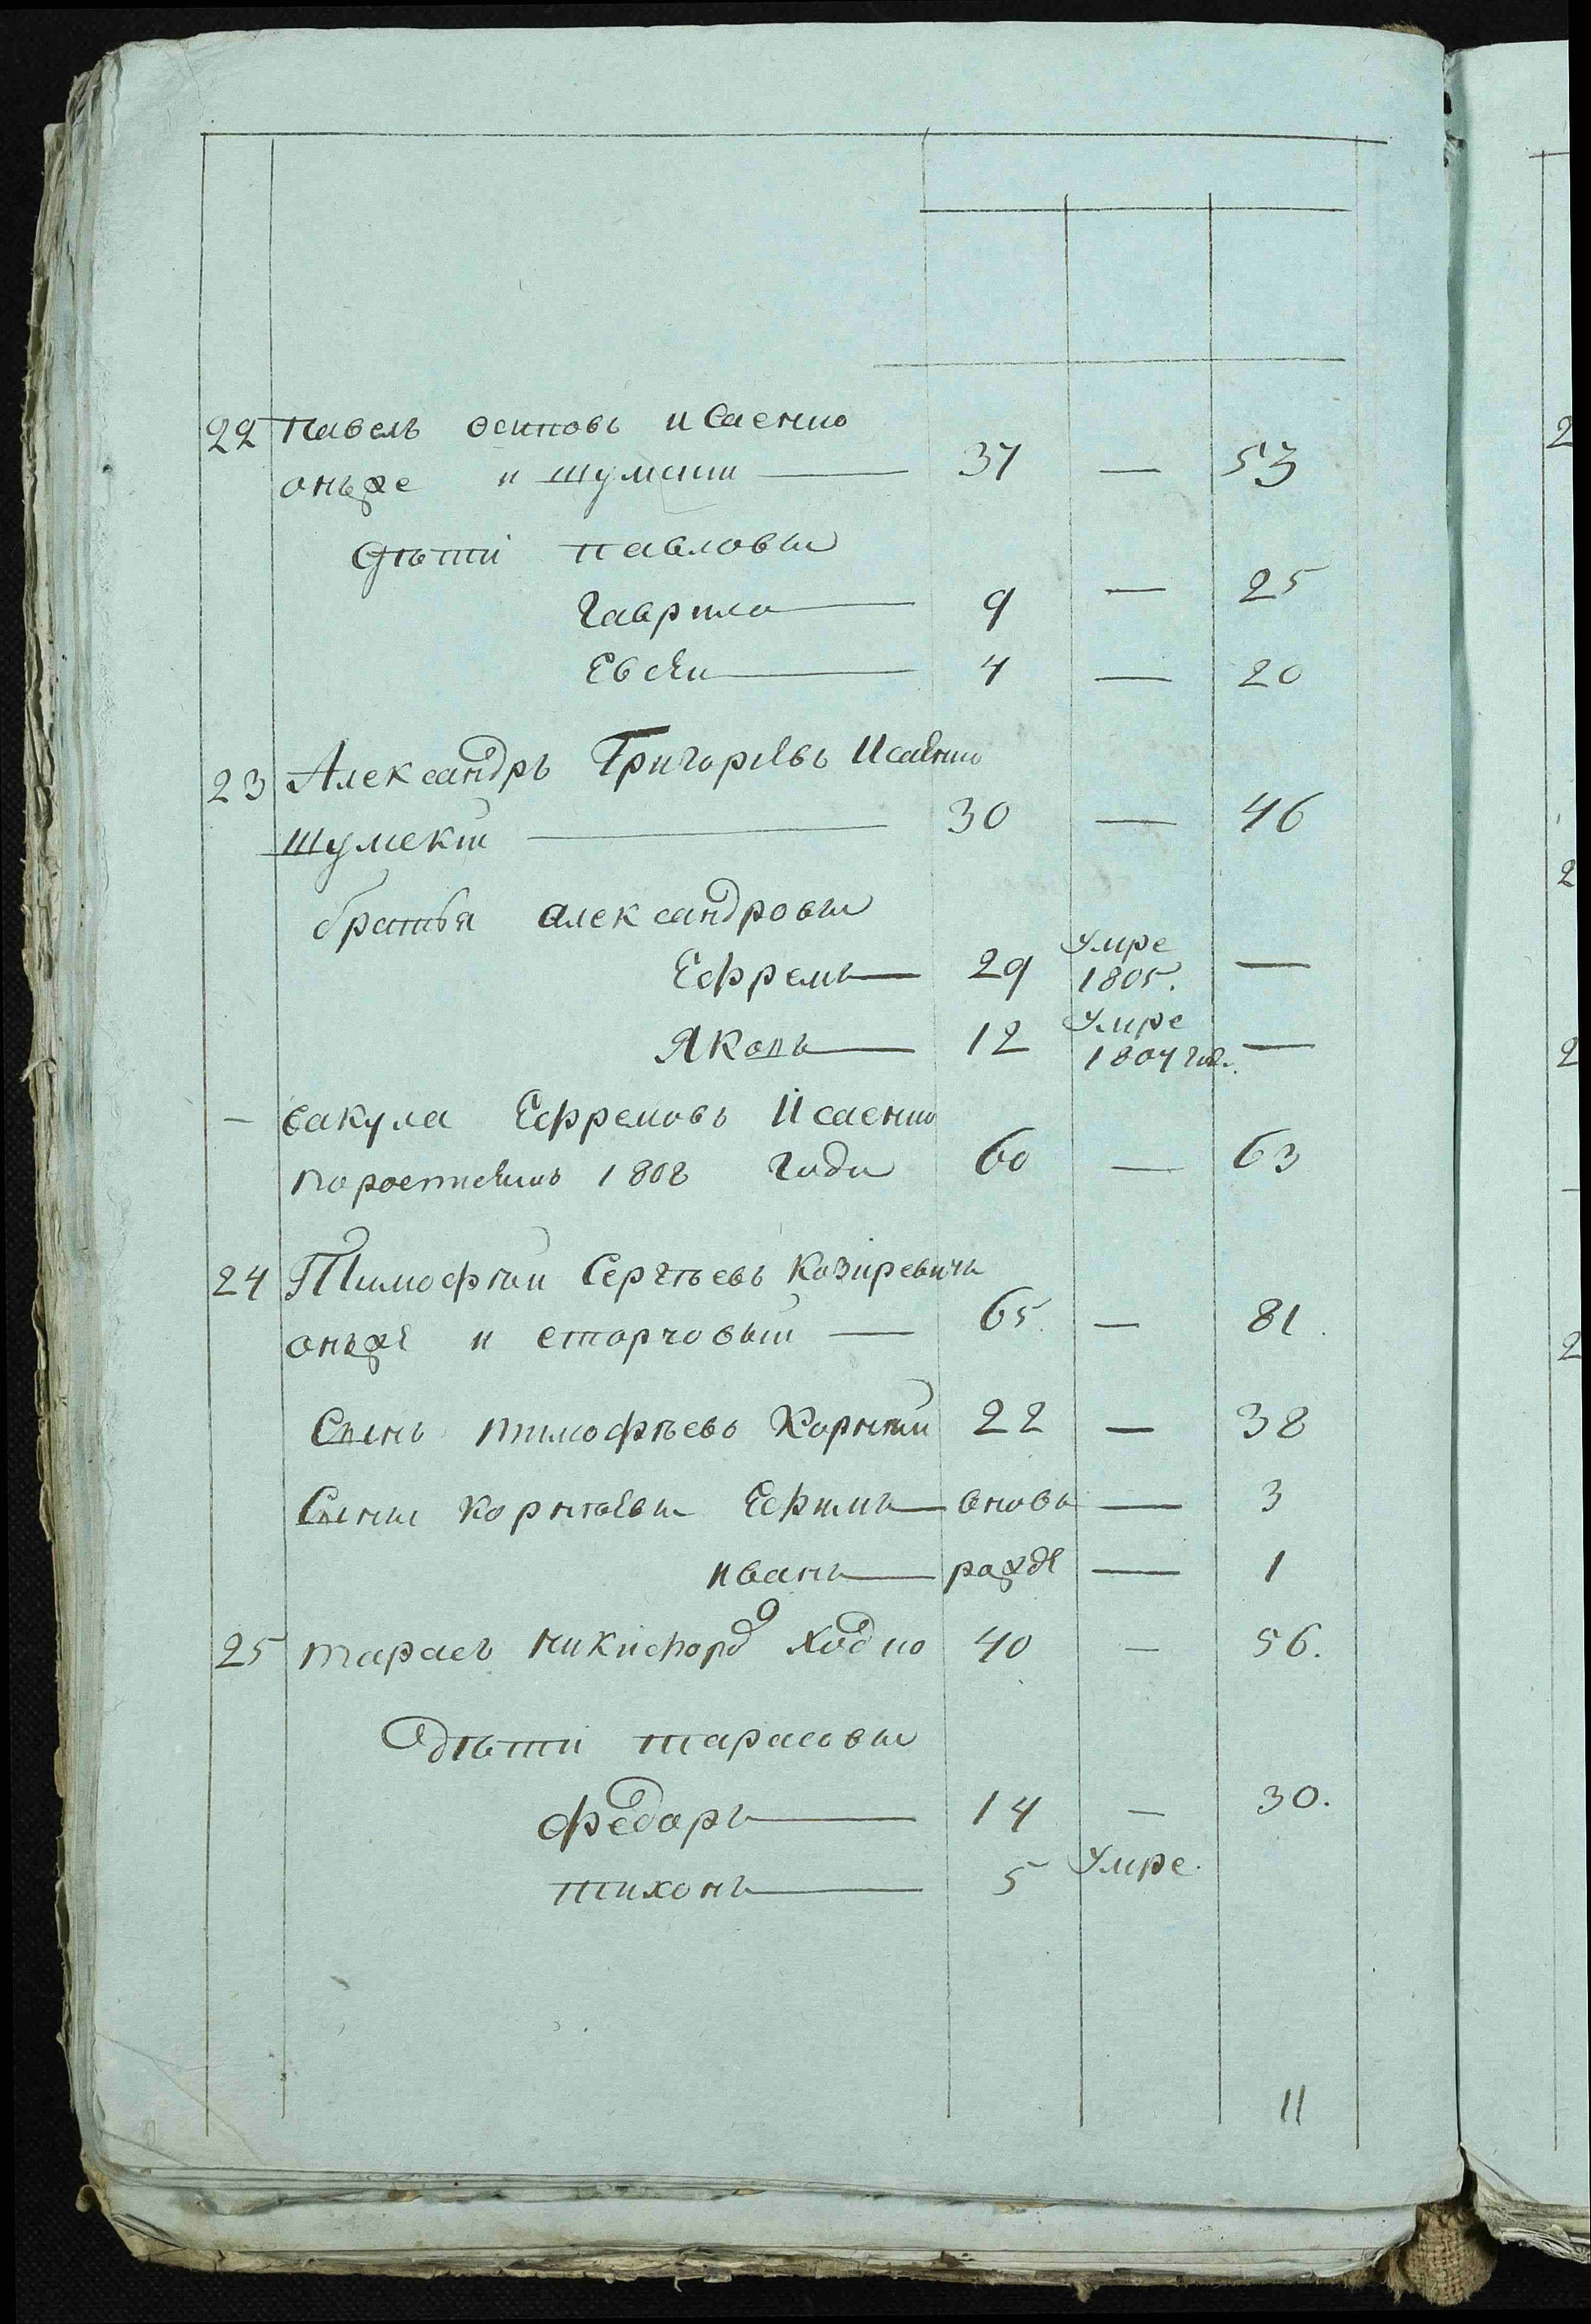 22 Павелъ Осиповъ Исаенко
онъже и Шумскій — 37 — 53
дѣти Павловы
Гаврило — 9 — 25
Евсѣй — 4 — 20
23 Александръ Григорьевъ Исаенко
Шумскій — 30 — 46
братья Александровы
Ефремъ — 29 умре 1805. —
Яковъ — 12 умре 1804 год. —
— Вакула Ефремовъ Исаенко
1808 года 60 — 63
24 Тимофѣй Сергѣевъ Козиревичъ
онъже и Сторчовый — 65. — 81.
Сынъ Тимофѣевъ Корнѣй 22 — 38
Сыны Корнѣевы Ефимъ — вновь — 3
Иванъ — рожде — 1
25 Тарасъ Никифоро Ходко 40 — 56.
дѣти Тарасовы
Федоръ — 14 — 30.
Тихонъ — 5 умре.
11
2
2
2
2